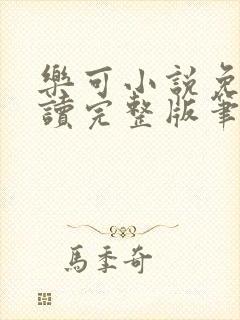 樂可小説免
讀完整版筆
馬季奇